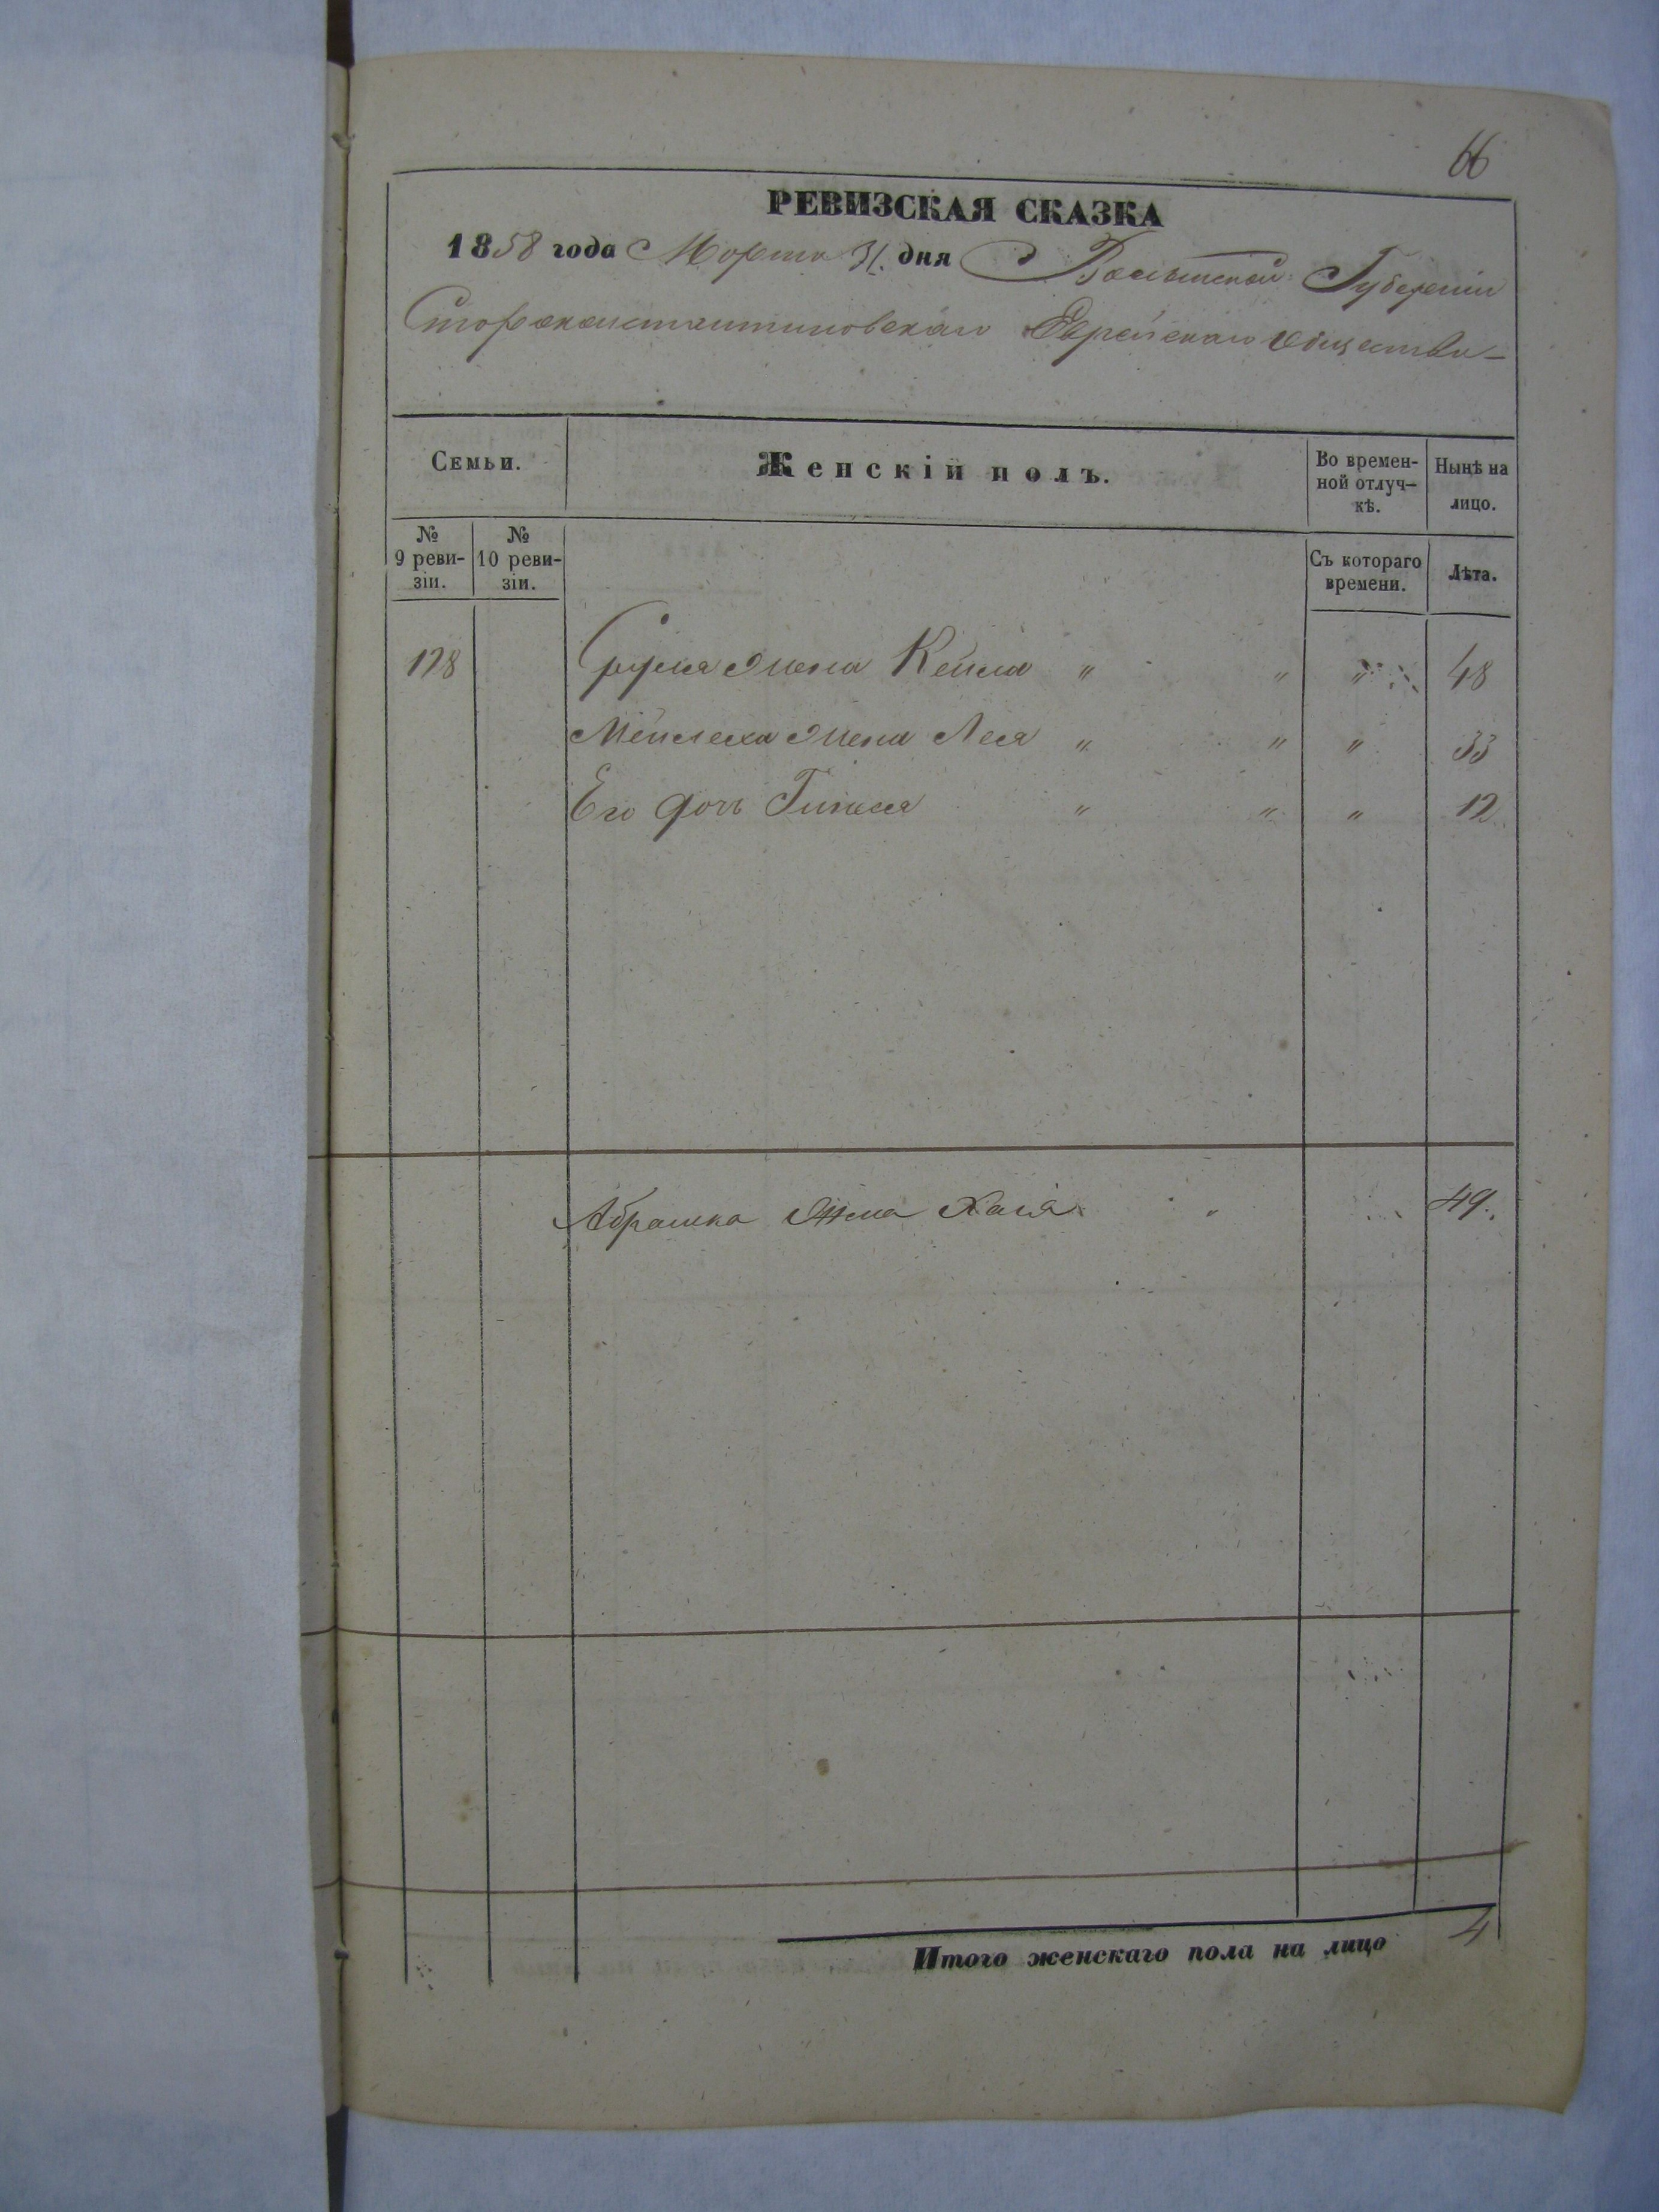 66
РЕВИЗСКАЯ СКАЗКА
1858 года Марта 31 дня Волынской Губерніи
Староконстантиновскаго Еврейскаго Общества
Семьи.
Женскій полъ.
Во времен-
ной отлуч-
кѣ.
Нынѣ на
лицо.
№
9 реви-
зіи.
№
10 реви-
зіи.
Съ котораго
времени.
Лѣта.
128 Сруля жена Кейла " " " 48
Мейлеха жена Леся " " " 33
Его дочь " " " 12
Абрамка жена Хая " 49
Итого женскаго пола на лицо 4